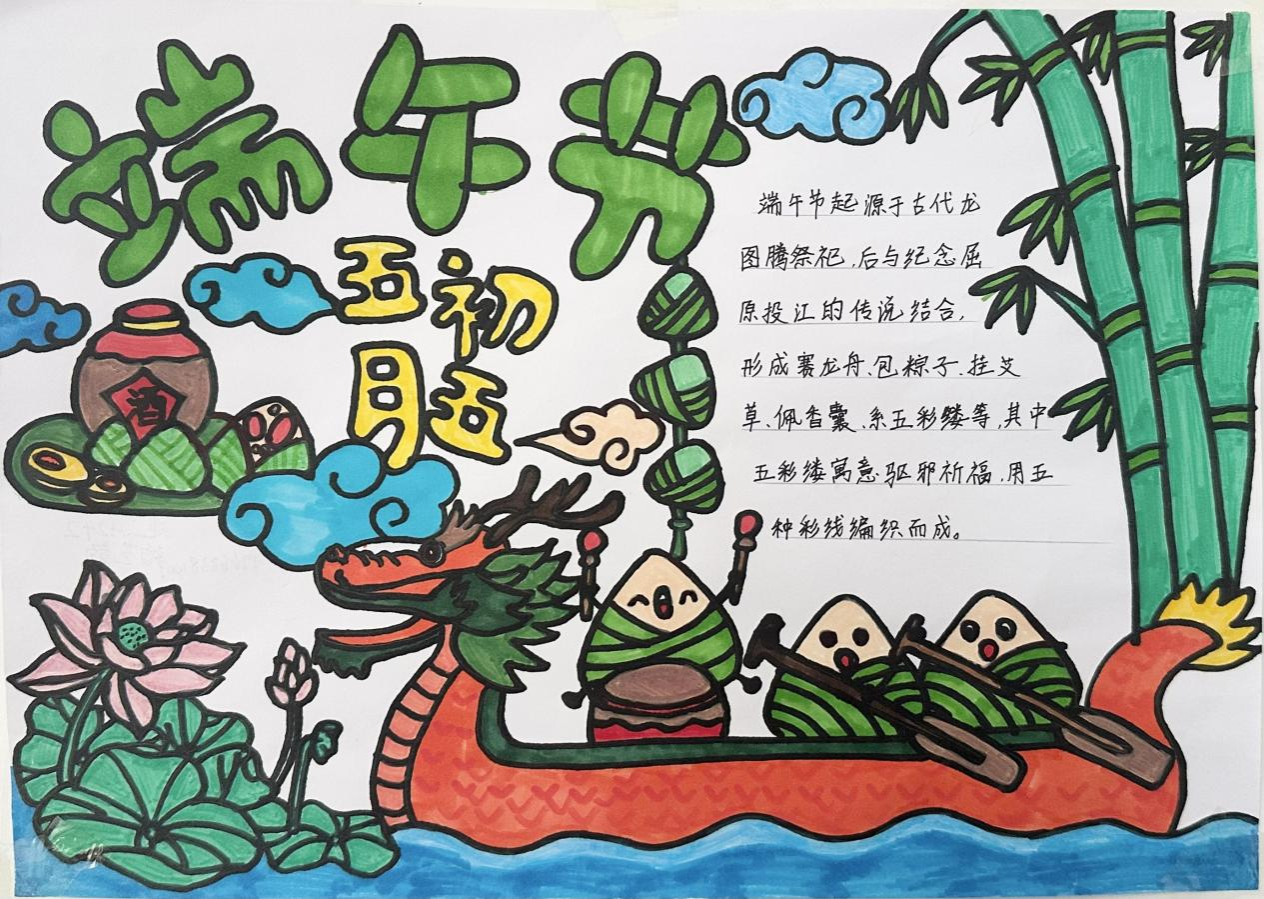 端午节
五月
初五
酒
端午节起源于古代龙
图腾祭祀、后与纪念屈
原投江的传说结合,
形成赛龙舟、包粽子、挂艾
草、佩香囊、系五彩缕等,其中
五彩缕寓意驱邪祈福,用五
种彩线编织而成。